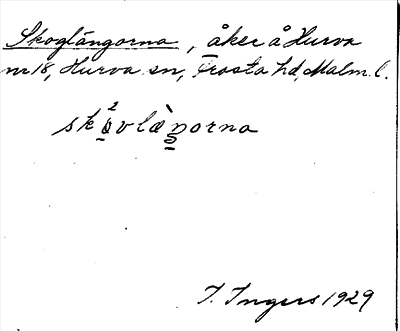 Skoglängorna, åker å Hurva
nr 18, Hurva sn, Frosta hd, Malm. l.
skovlæŋorna
I. Ingers 1929